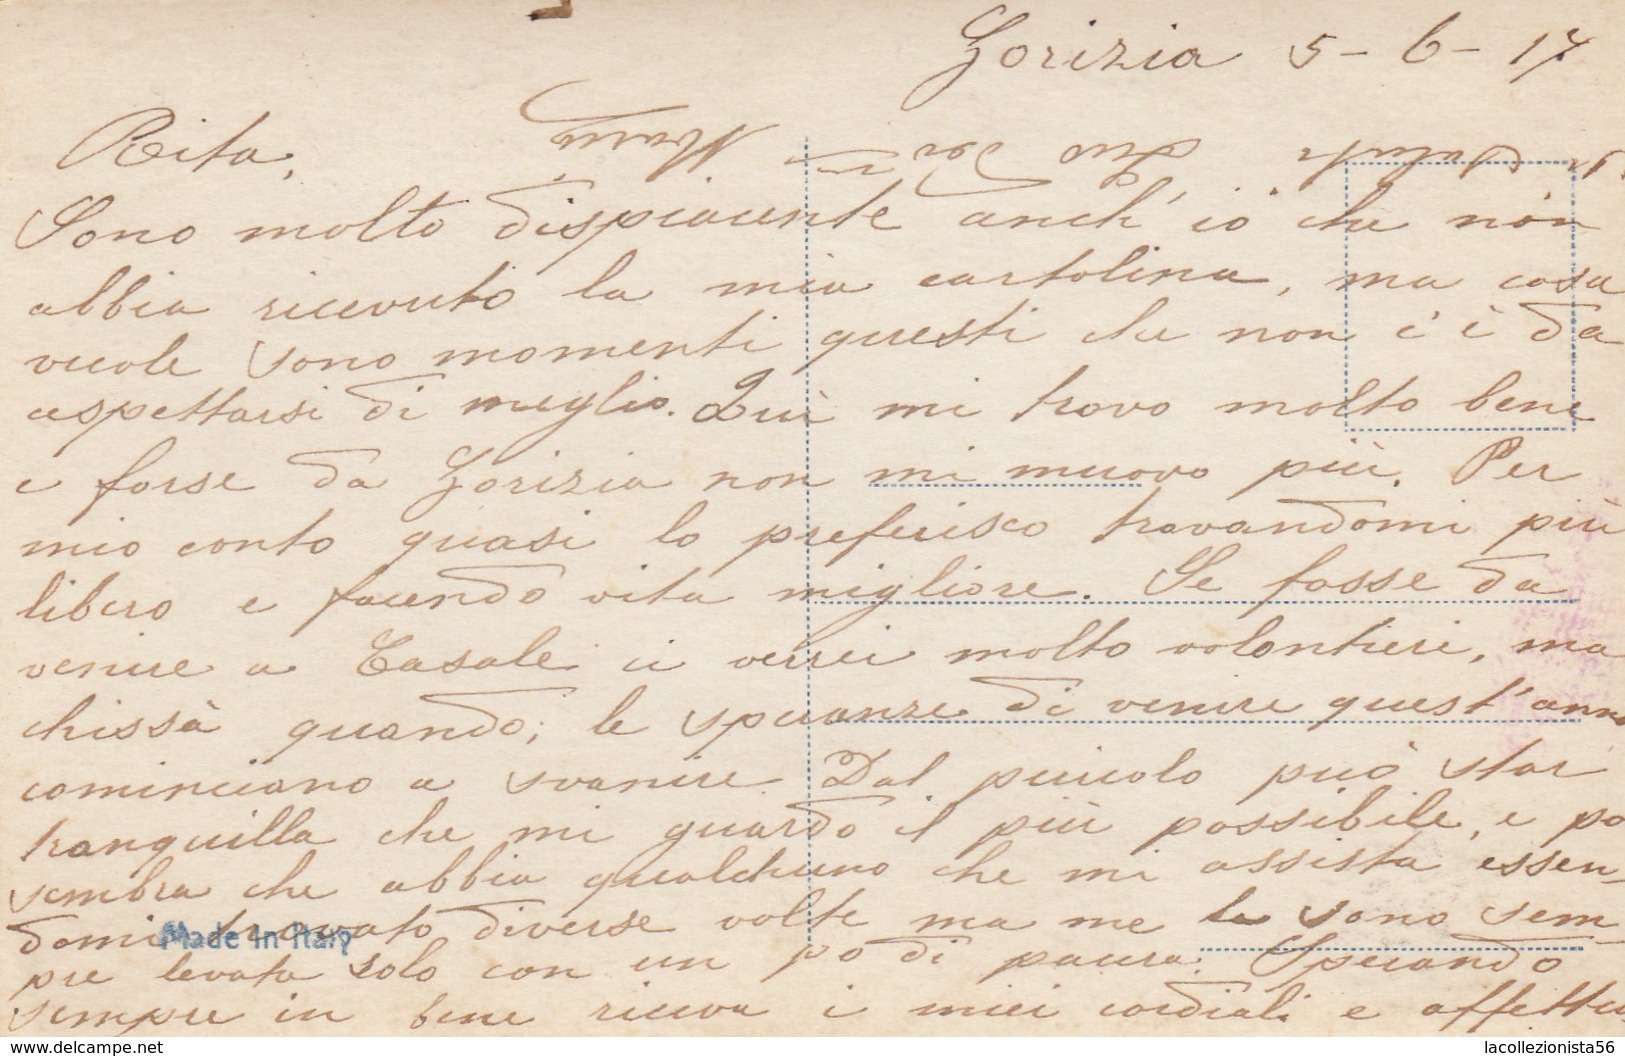 Gorizia 5-6-17
Rita,
Sono molto dispiacente anch'io che non
abbia ricevuto la mia cartolina, ma cosa
vuole sono momenti questi che non c'è da
aspettarsi di meglio. Quì mi trovo molto bene
e forse da Gorizia non mi muovo più. Per
mio conto quasi lo preferisco trovandomi più
libero e facendo vita migliore. Se fosse da
venire a Casale ci verrei molto volontieri, ma
chissà quando; le speranze di venire quest'anno
cominciano a svanire. Dal piccolo può star
tranquilla che mi guardo il più possibile, e po
sembra che abbia qualchuno che mi assista essen-
domi trovato diverse volte ma me la sono sem-
pre levata solo con un po di paura. Sperando
sempre in bene riceva i miei cordiali e affettu
Saluti Suo
Made in Italy
delcampe.net
lacollezionista56